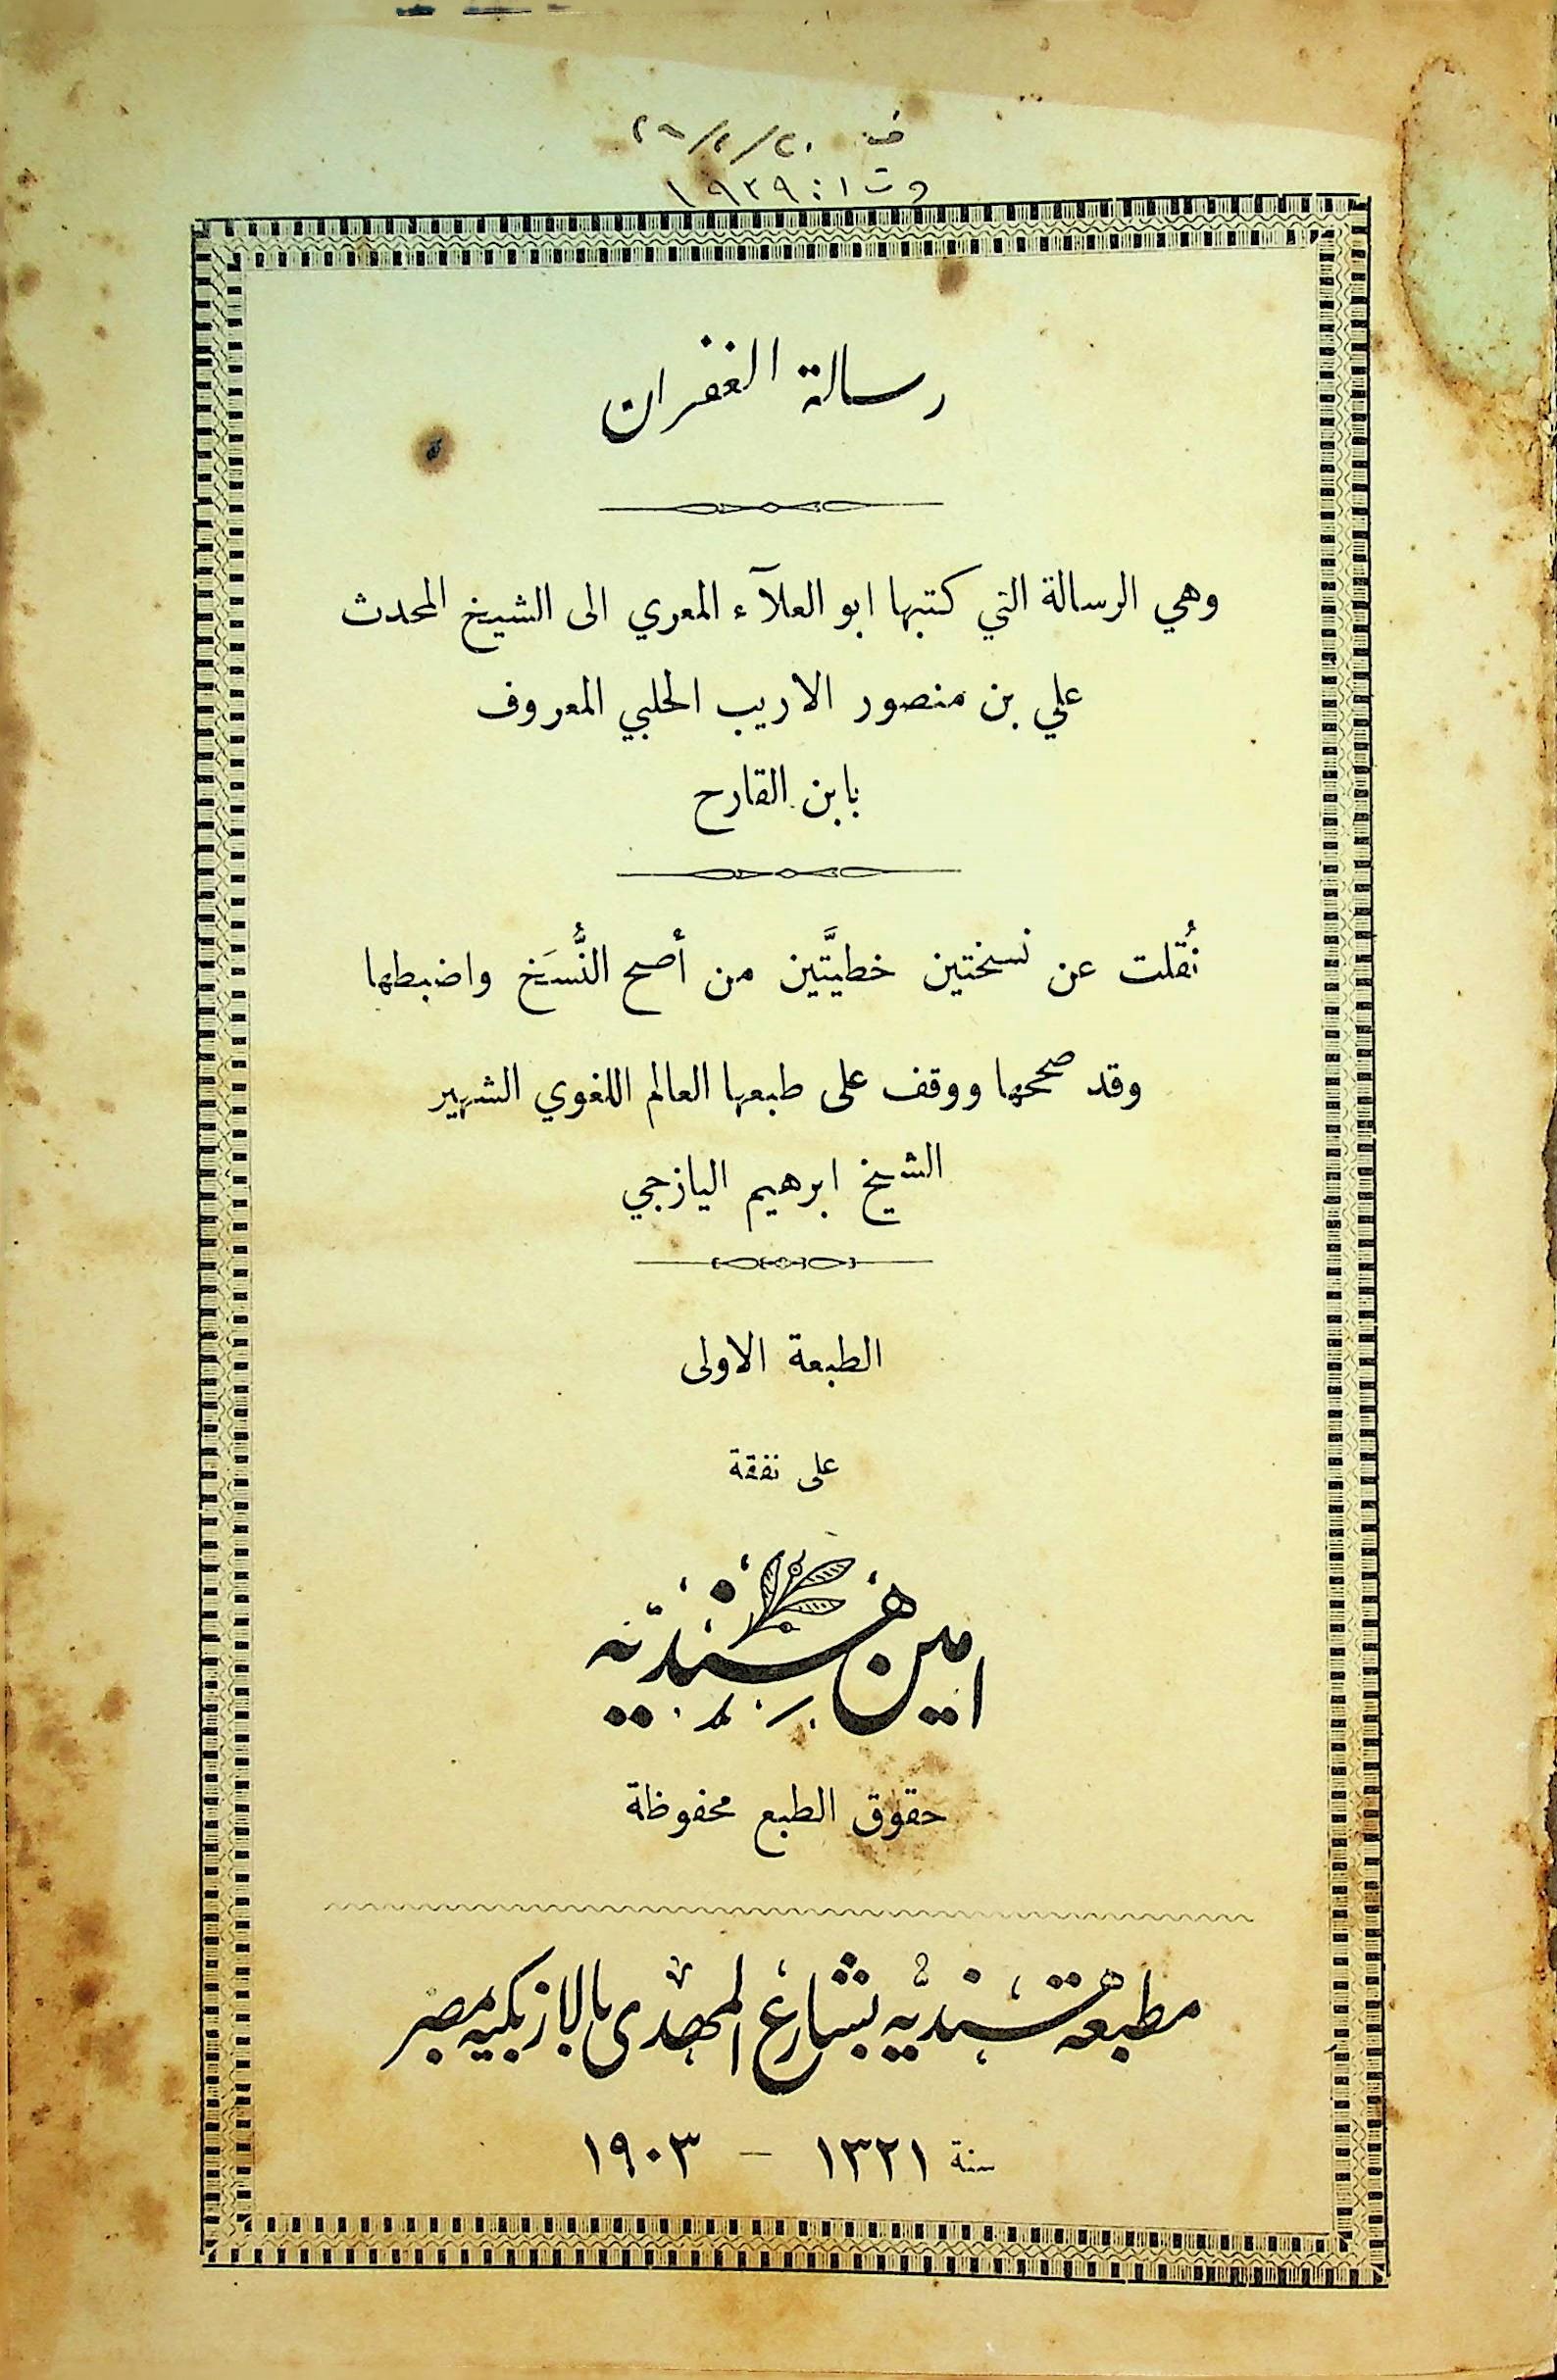 ١٩٣٩
رسالة الغفران
وهي الرسالة التي كتبها ابو العلآء المعري الى الشيخ المحدث
علي بن منصور الاريب الحلبي المعروف
بابن القارح
نُقلت عن نسختين خطيَّتين من أصح النُّسَخ واضبطها
وقد صححها ووقف على طبعها العالم اللغوي الشهير
الشيخ ابرهيم اليازجي
الطبعة الاولى
على نفقة
امين هندية
حقوق الطبع محفوظة
مطبعة هندية بشارع المهدى بالازبكيه بمصر
سنة ١٣٢١ – ١٩٠٣